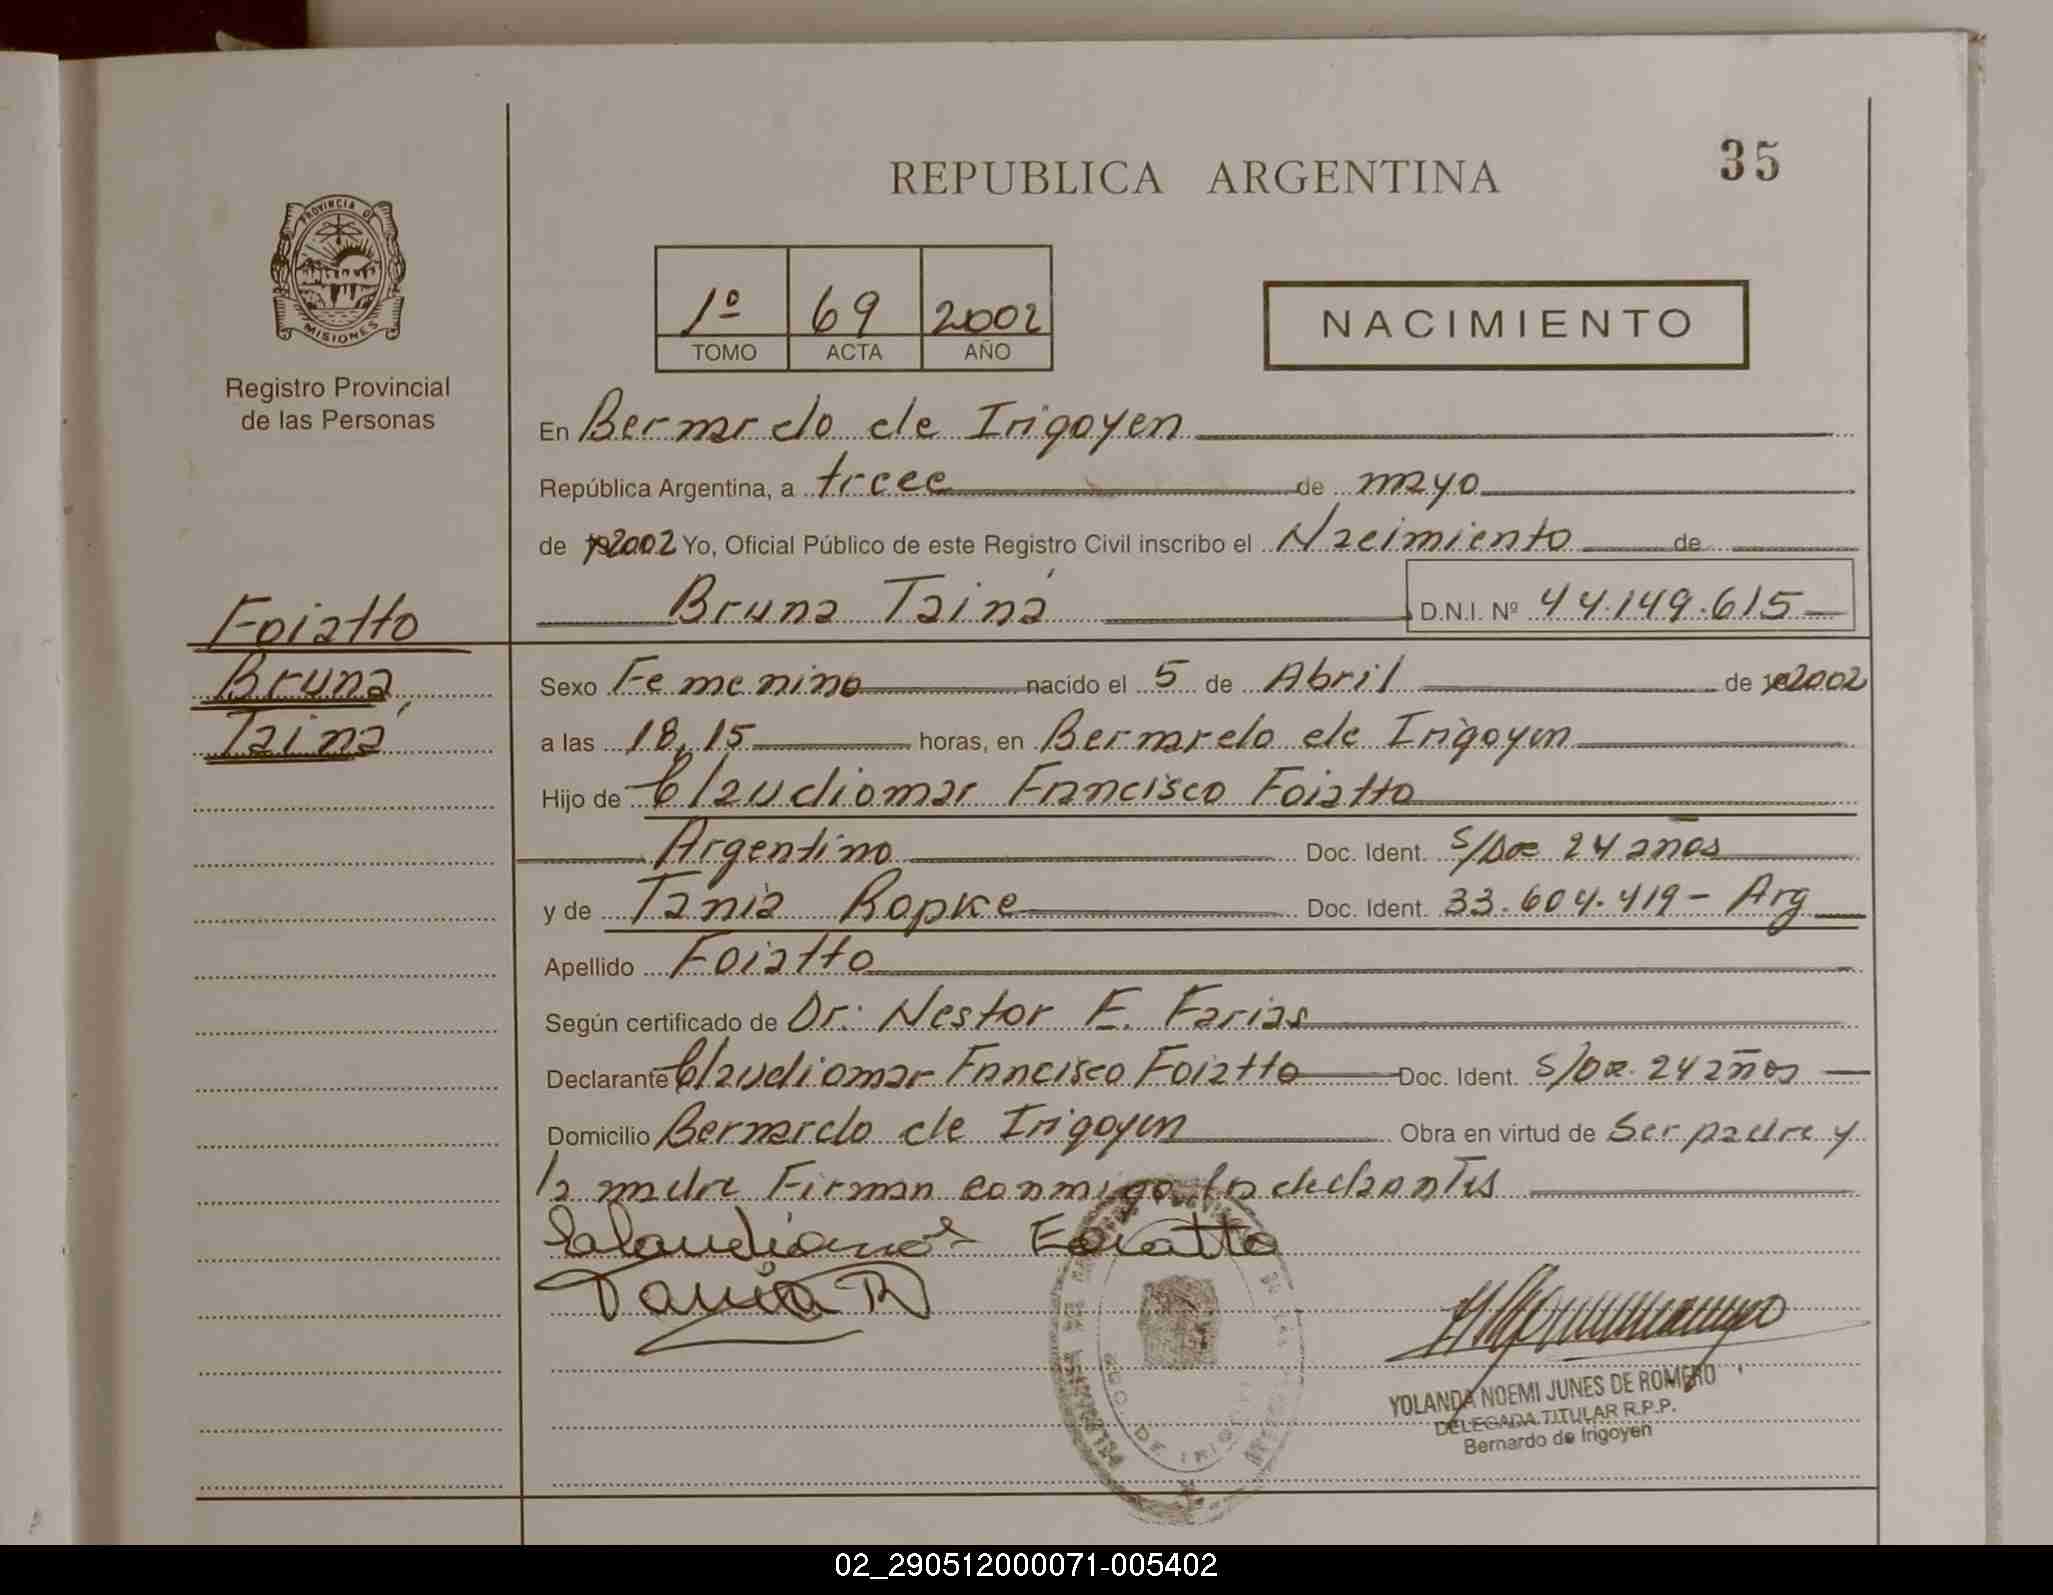 35
REPUBLICA ARGENTINA
PROVINCIA DE
MISIONES
Registro Provincial
de las Personas
1º 69 2002
TOMO ACTA AÑO
NACIMIENTO
En Bernardo de Irigoyen
República Argentina, a trece de mayo
de 2002 Yo, Oficial Público de este Registro Civil inscribo el Nacimiento de
Bruna Tainá D.N.I. Nº 44.149.615
Foiatto
Bruna
Tainá
Sexo Femenino nacido el 5 de Abril de 2002
a las 18,15 horas, en Bernardo de Irigoyen
Hijo de Claudiomar Francisco Foiatto
Argentino Doc. Ident. S/Doc 24 años
y de Tania Ropke Doc. Ident. 33.604.419- Arg
Apellido Foiatto
Según certificado de Dr. Nestor E. Farias
Declarante Claudiomar Francisco Foiatto Doc. Ident. S/Doc. 24 años
Domicilio Bernardo de Irigoyen Obra en virtud de Ser padre y
la madre Firman conmigo los declarantes
Foiatto
Tania R
YOLANDA NOEMI JUNES DE ROMERO
DELEGADA TITULAR R.P.P.
Bernardo de Irigoyen
02_290512000071-005402